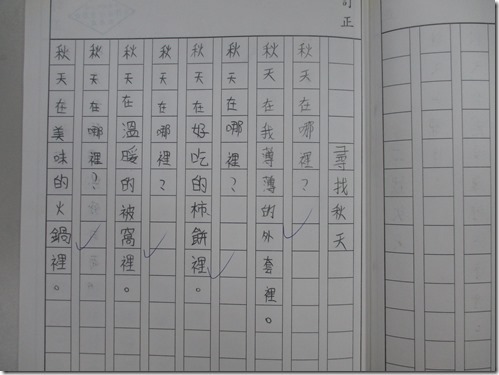 訂正
尋找秋天
秋天在哪裡?
秋天在我薄薄的外套裡。
秋天在哪裡?
秋天在好吃的柿餅裡。
秋天在哪裡?
秋天在溫暖的被窩裡。
秋天在哪裡?
秋天在美味的火鍋裡。